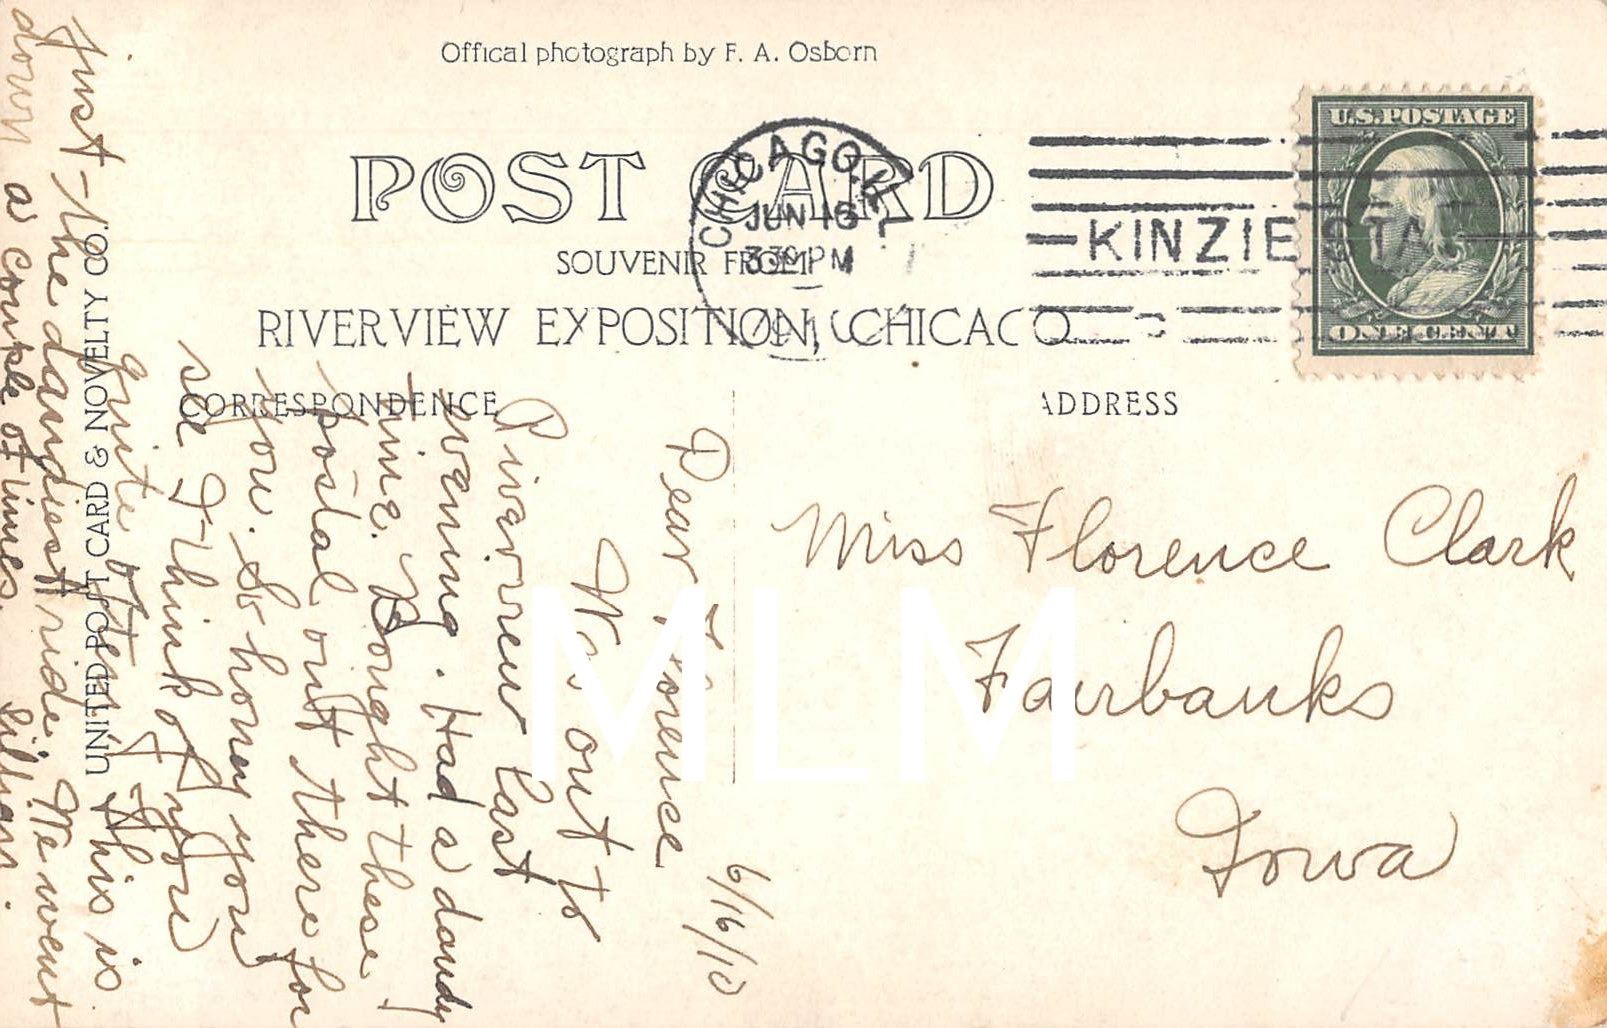 Offical photograph by F. A. Osborn
POST CARD
SOUVENIR FROM
RIVERVIEW EXPOSITION, CHICAGO
CORRESPONDENCE
ADDRESS
UNITED POST CARD & NOVELTY CO.
CHICAGO, ILL.
JUN 16
3 30 PM
1910
KINZIE STA.
U.S. POSTAGE
ONE CENT
Miss Florence Clark
Fairbanks
Iowa
6/16/10
Dear Florence
Was out to
Riverview last
evening. Had a dandy
time. Bought these
postal out there for
you. So honey you
see I think of you
quite often. This is
Just - the dandiest ride. We went
down a couple of times. Lillian.
MLM